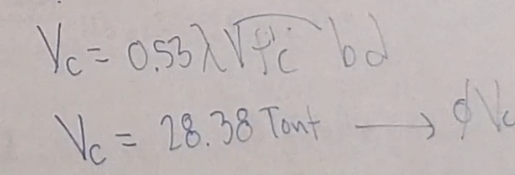 Vc = 0.53λ√f'c bd
Vc = 28.38 Tonf → ϕVc